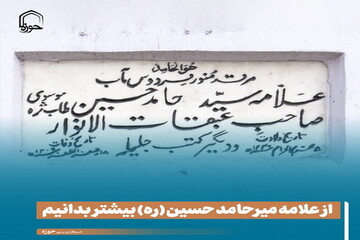 حوزه
هوالحامد
مرقد مغفور فردوس مآب
علامه سید حامد حسین موسوی طاب ثره
صاحب عبقات الانوار
و دیگر کتب جلیله
تاریخ ولادت
تاریخ وفات
از علامه میرحامد حسین (ره) بیشتر بدانیم
حوزه